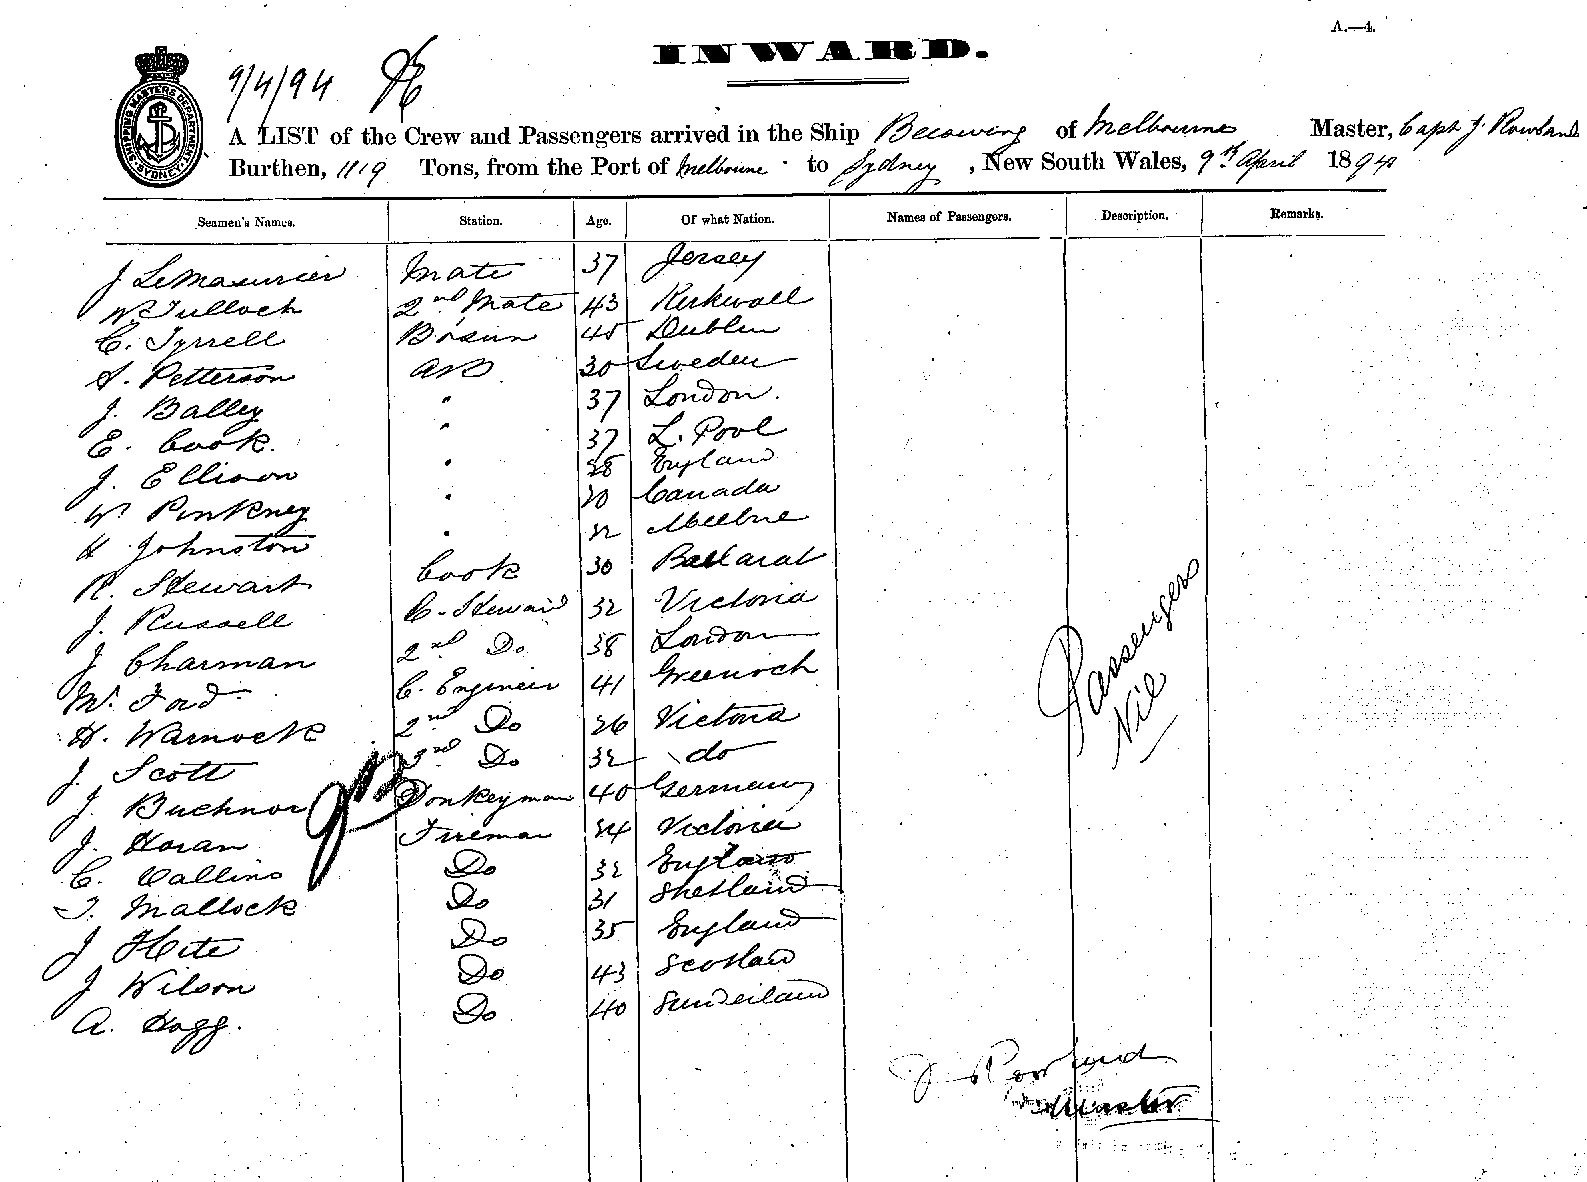 A.—4.
INWARD.
9/4/94
SHIPPING MASTERS DEPARTMENT SYDNEY
A LIST of the Crew and Passengers arrived in the Ship of Melbourne Master, Capt J. Rowland
Burthen, 1119 Tons, from the Port of Melbourne to Sydney, New South Wales, 9th April 1894
Seamen's Names. Station. Age. Of what Nation. Names of Passengers. Description. Remarks.
J LeMasurier Mate 37 Jersey
W. Tulloch 2nd Mate 43 Kirkwall
C. Tyrrell Bosun 45 Dublin
A. Petterson AB 30 Sweden
J. Balley " 37 London.
E. Cook. " 37 L. Pool
J. Ellison " 28 England
W. Pinkney " 20 Canada
H. Johnston " 32 Melbne
R. Stewart Cook 30 Ballarat
J. Russell C. Steward 32 Victoria
J Charman 2nd Do 38 London
W. Ford C. Engineer 41 Greenock
H. Warnock 2nd Do 26 Victoria
J. Scott 3rd Do 32 do
J. Buchnor Donkeyman 40 Germany
J. Horan Fireman 24 Victoria
C. Collins Do 32 England
T. Mallock Do 31 Shetland
J Do 35 England
J Wilson Do 43 Scotland
A. Hogg. Do 40 Sunderland
Passengers
Nil
J Rowland
Master